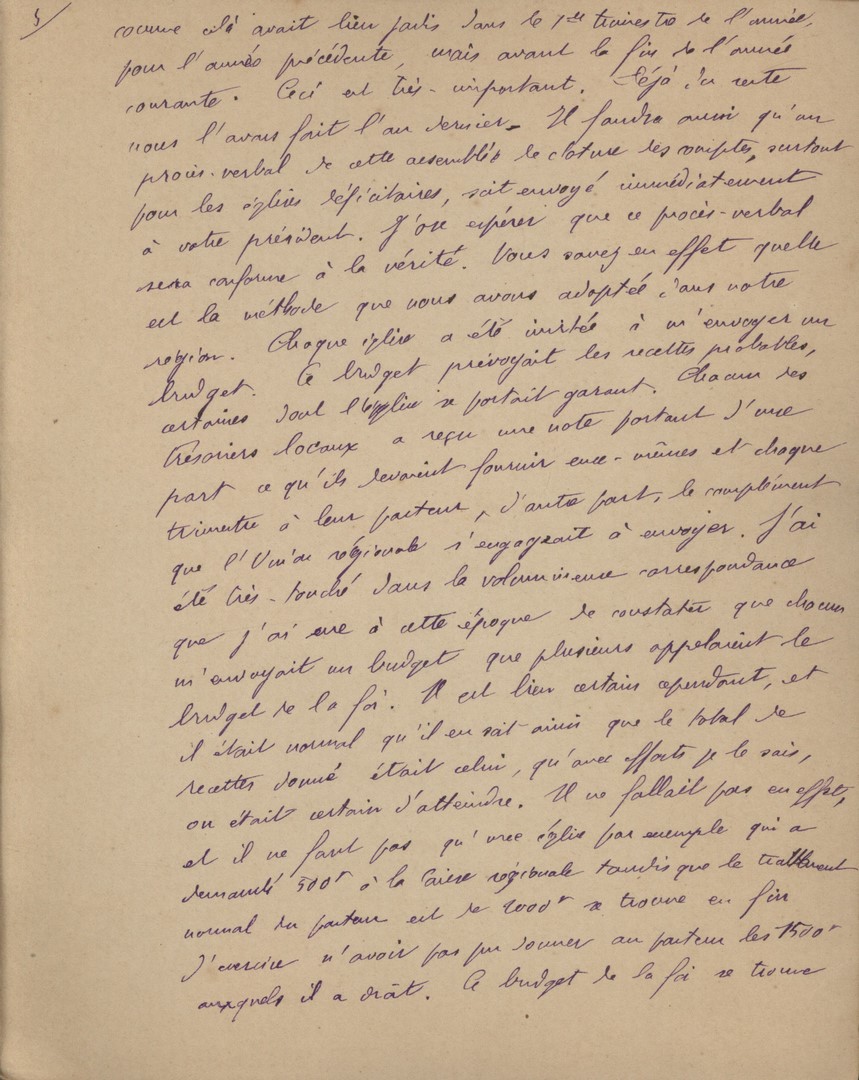 5/
comme celà avait lieu jadis dans le 1er trimestre de l'année,
pour l'année précédente, mais avant la fin de l'année
courante. Ceci est très-important. Déjà du reste
nous l'avons fait l'an dernier. Il faudra aussi qu'un
procès-verbal de cette assemblée de cloture des comptes, surtout
pour les églises déficitaires, soit envoyé immédiatement
à votre président. J'ose espérer que ce procès-verbal
sera conforme à la vérité. Vous savez en effet quelle
est la méthode que nous avons adoptée dans notre
région. Chaque église a été invitée à m'envoyer un
budget. Ce budget prévoyait les recettes probables,
certaines dont l'église se portait garant. Chacun des
trésoriers locaux a reçu une note portant d'une
part ce qu'ils devaient fournir eux-mêmes et chaque
trimestre à leur pasteur, d'autre part, le complément
que l'Union régionale s'engageait à envoyer. J'ai
été très-touché dans la volumineuse correspondance
que j'ai eue à cette époque de constater que chacun
m'envoyait un budget que plusieurs appelaient le
budget de la foi. Il est bien certain cependant, et
il était normal qu'il en soit ainsi que le total de
recettes donné était celui, qu'avec efforts je le sais,
on était certain d'atteindre. Il ne fallait pas en effet,
et il ne faut pas qu'une église par exemple qui a
demandé 500f à la Caisse régionale tandis que le traitement
normal du pasteur est de 2000f se trouve en fin
d'exercice n'avoir pas pu donner au pasteur les 1500f
auxquels il a droit. Ce budget de la foi se trouve